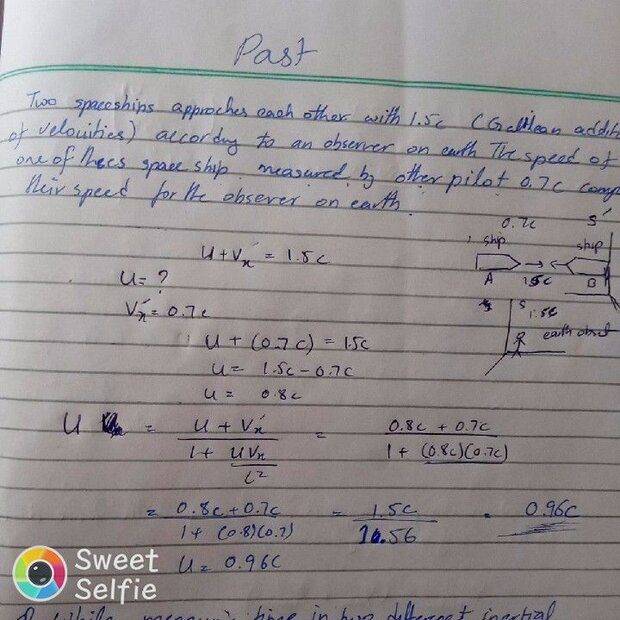 Past
Two spaceships approches each other with 1.5c (Galilean addit
of velocities) accordng to an observer on earth The speed of
one of thecs space ship measured by other pilot 0.7c comp
their speed for the observer on earth.
0.7c S'
ship ship
A 1.5c B
S 1.5c
earth obset
U + Vx' = 1.5c
U = ?
Vx' = 0.7c
U + (0.7c) = 1.5c
U = 1.5c - 0.7c
U = 0.8c
U = U + Vx' / 1 + UVx / c² = 0.8c + 0.7c / 1 + (0.8c)(0.7c)
= 0.8c + 0.7c / 1 + (0.8)(0.7) = 1.5c / 1.56 = 0.96c
U = 0.96c
Sweet
Selfie
while time in two different inertial